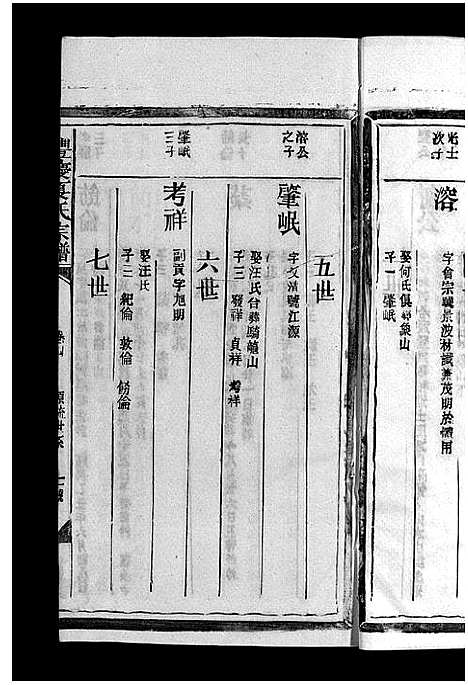 處士
次子
溶
字會宗號景波材識兼茂明於體用
娶何氏俱葬象山
子一 肇岷
五世
溶公
之子
肇岷
字文清號江源
娶汪氏合葬鷂鷹山
子三 發祥 貞祥 考祥
六世
肇岷
三子
考祥
副貢字旭明
娶汪氏
子三 紀倫 敦倫 飭倫
七世
豐慶夏氏宗譜
源流世系